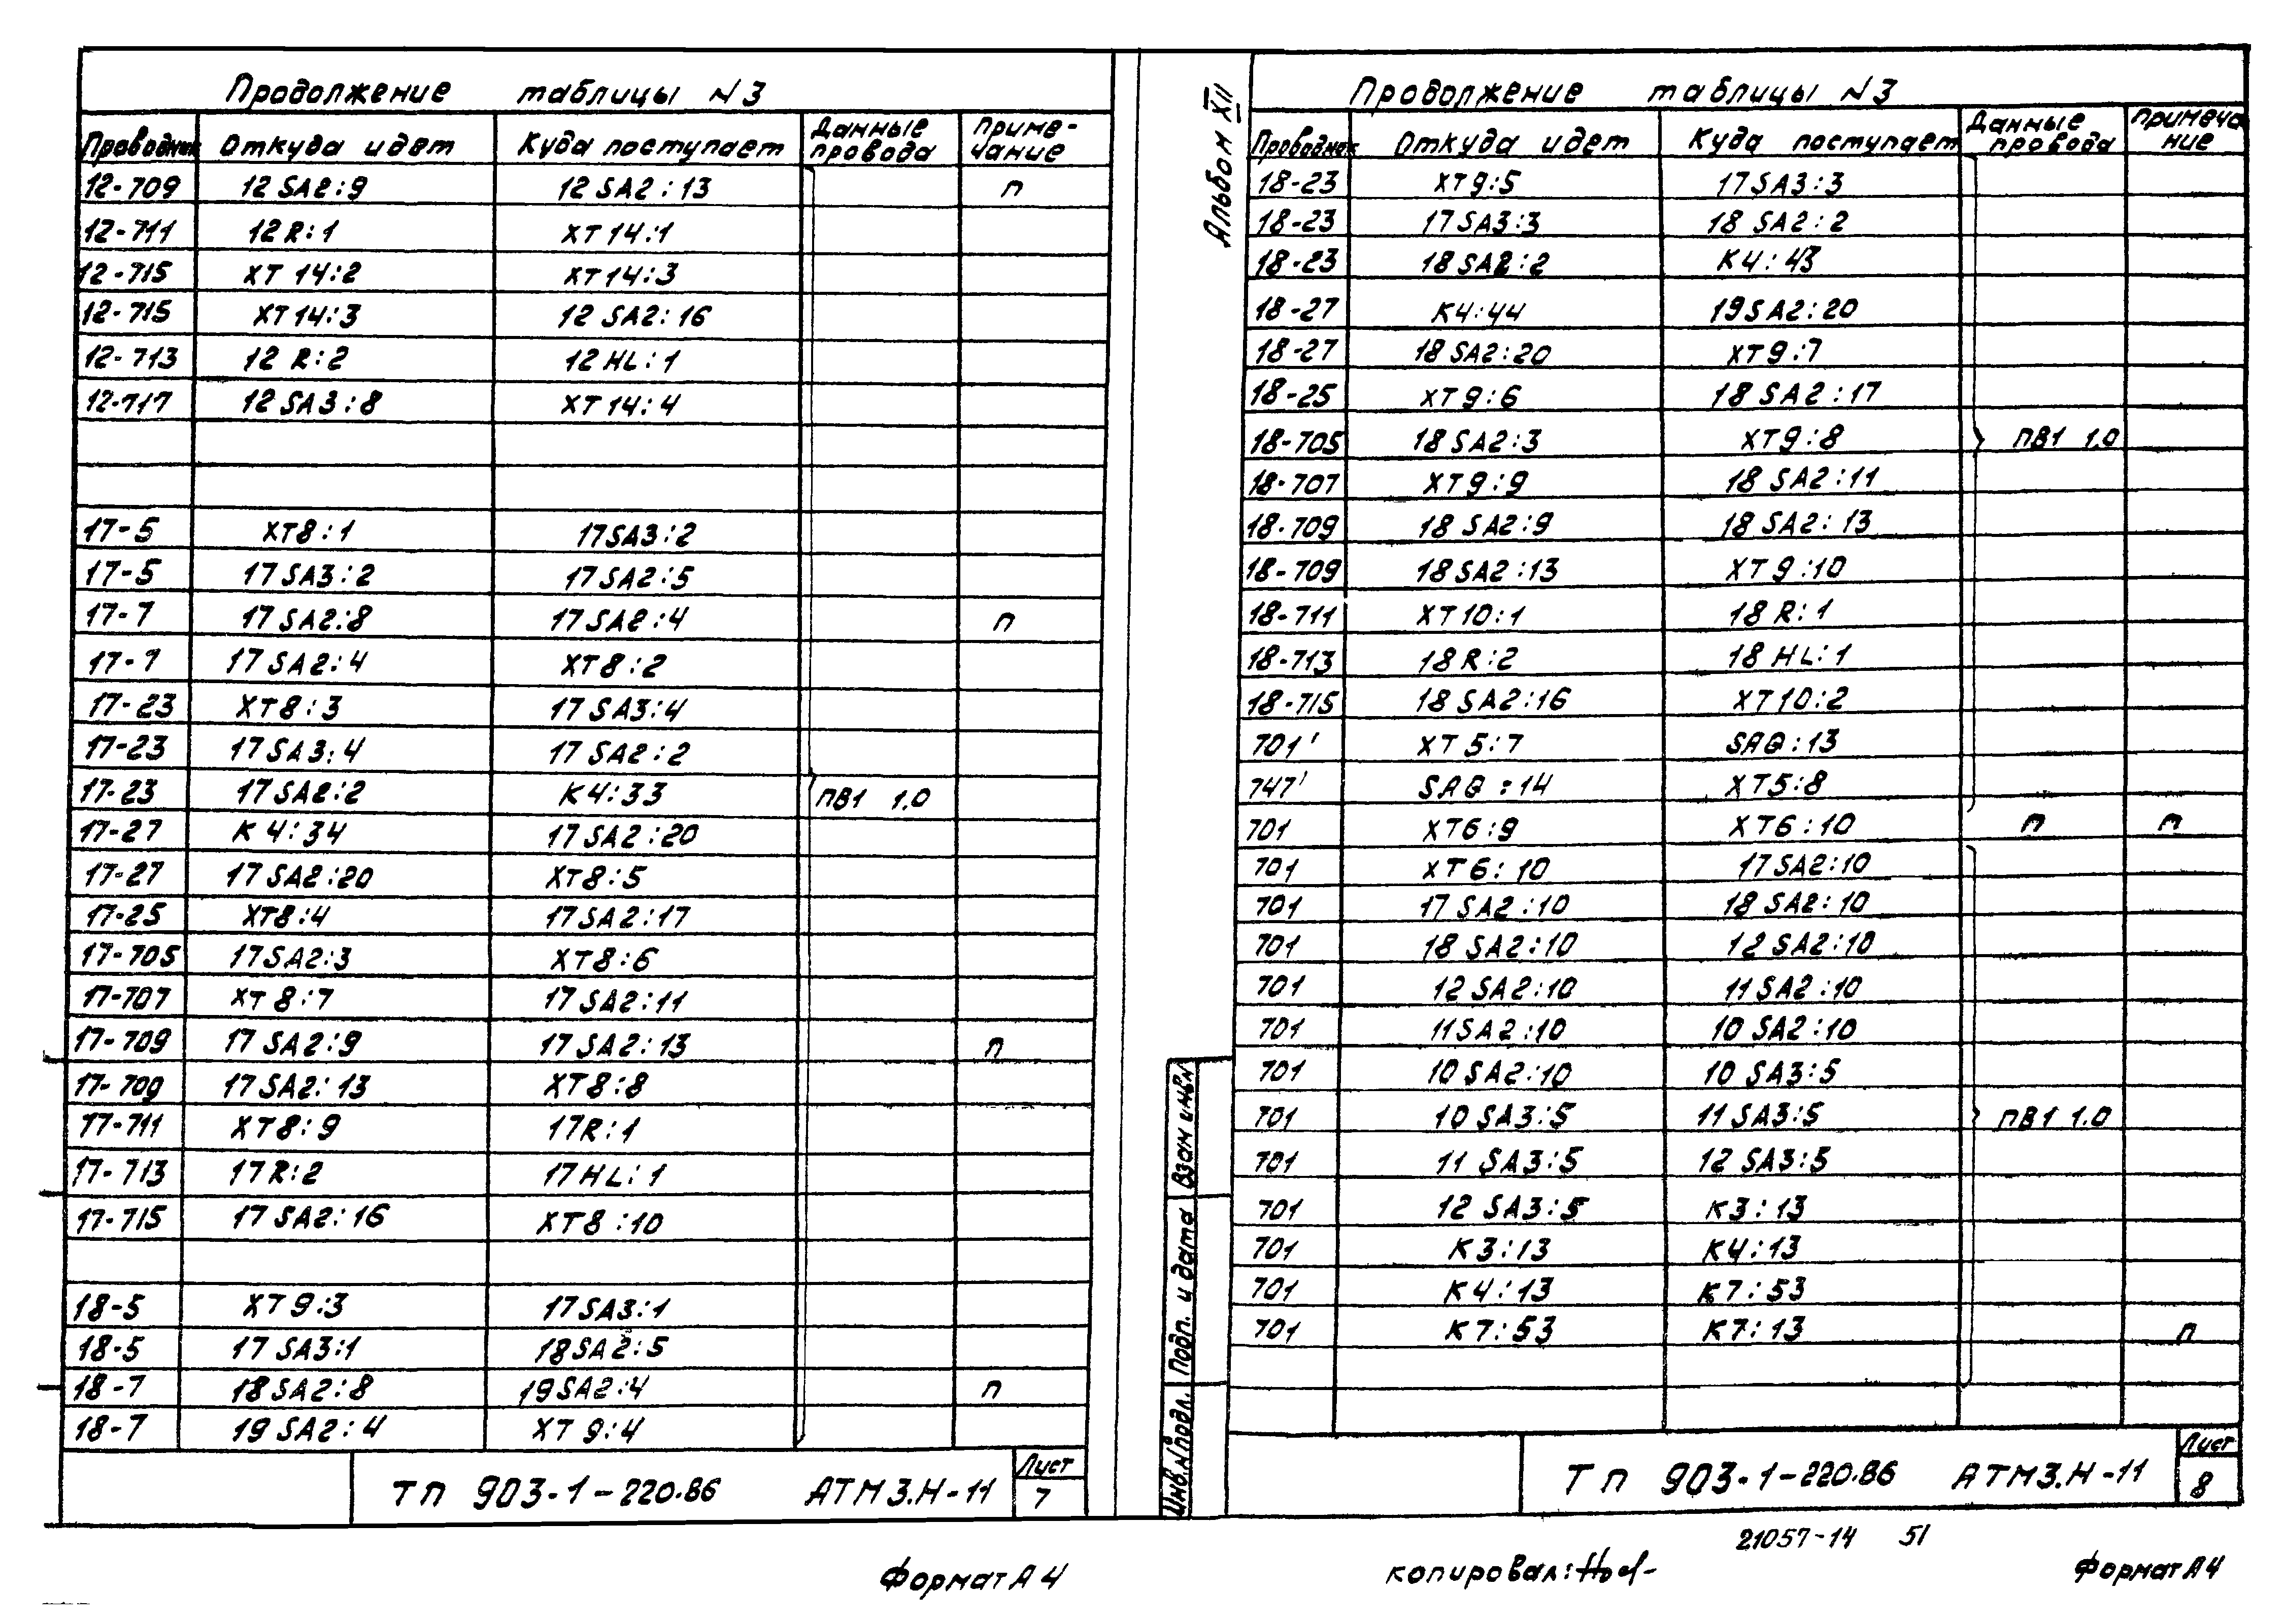 Продолжение таблицы N3
Проводник Откуда идет Куда поступает Данные провода Приме-чание
12-709 12SA2:9 12SA2:13 п
12-711 12R:1 XT14:1
12-715 XT14:2 XT14:3
12-715 XT14:3 12SA2:16
12-713 12R:2 12HL:1
12-717 12SA3:8 XT14:4
17-5 XT8:1 17SA3:2
17-5 17SA3:2 17SA2:5
17-7 17SA2:8 17SA2:4 п
17-7 17SA2:4 XT8:2
17-23 XT8:3 17SA3:4
17-23 17SA3:4 17SA2:2
17-23 17SA2:2 K4:33 ПВ1 1.0
17-27 K4:34 17SA2:20
17-27 17SA2:20 XT8:5
17-25 XT8:4 17SA2:17
17-705 17SA2:3 XT8:6
17-707 XT8:7 17SA2:11
17-709 17SA2:9 17SA2:13 п
17-709 17SA2:13 XT8:8
17-711 XT8:9 17R:1
17-713 17R:2 17HL:1
17-715 17SA2:16 XT8:10
18-5 XT9:3 17SA3:1
18-5 17SA3:1 18SA2:5
18-7 18SA2:8 19SA2:4 п
18-7 19SA2:4 XT9:4
ТП 903-1-220.86 АТМ3.Н-11 Лист 7
Формат А4
Альбом XII
Продолжение таблицы N3
Проводник Откуда идет Куда поступает Данные провода Примечание
18-23 XT9:5 17SA3:3
18-23 17SA3:3 18SA2:2
18-23 18SA2:2 K4:43
18-27 K4:44 19SA2:20
18-27 18SA2:20 XT9:7
18-25 XT9:6 18SA2:17
18-705 18SA2:3 XT9:8 ПВ1 1.0
18-707 XT9:9 18SA2:11
18-709 18SA2:9 18SA2:13
18-709 18SA2:13 XT9:10
18-711 XT10:1 18R:1
18-713 18R:2 18HL:1
18-715 18SA2:16 XT10:2
701' XT5:7 SAQ:13
747' SAQ:14 XT5:8
701 XT6:9 XT6:10 п п
701 XT6:10 17SA2:10
701 17SA2:10 18SA2:10
701 18SA2:10 12SA2:10
701 12SA2:10 11SA2:10
701 11SA2:10 10SA2:10
701 10SA2:10 10SA3:5
701 10SA3:5 11SA3:5 ПВ1 1.0
701 11SA3:5 12SA3:5
701 12SA3:5 K3:13
701 K3:13 K4:13
701 K4:13 K7:53
701 K7:53 K7:13 п
Инв.N подл. Подп. и дата Взам инв.N
ТП 903-1-220.86 АТМ3.Н-11 Лист 8
21057-14 51
копировал:
Формат А4